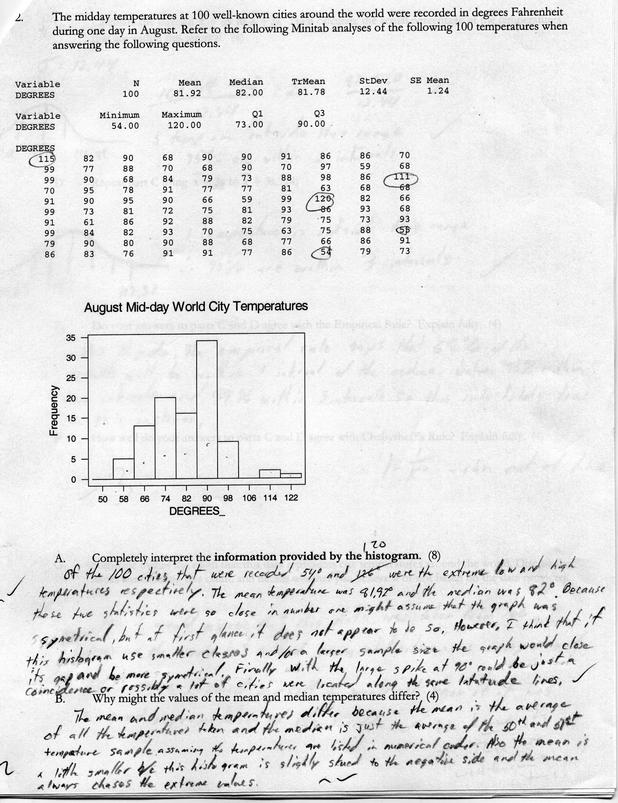 2. The midday temperatures at 100 well-known cities around the world were recorded in degrees Fahrenheit
during one day in August. Refer to the following Minitab analyses of the following 100 temperatures when
answering the following questions.
Variable N Mean Median TrMean StDev SE Mean
DEGREES 100 81.92 82.00 81.78 12.44 1.24
Variable Minimum Maximum Q1 Q3
DEGREES 54.00 120.00 73.00 90.00
DEGREES
115 82 90 68 90 90 91 86 86 70
99 77 88 70 68 90 70 97 59 68
99 90 68 84 79 73 88 98 86 111
70 95 78 91 77 77 81 63 68 68
91 90 95 90 66 59 99 120 82 66
99 73 81 72 75 81 93 86 93 68
91 61 86 92 88 82 79 75 73 93
99 84 82 93 70 75 63 75 88
79 90 80 90 88 68 77 66 86 91
86 83 76 91 91 77 86 54 79 73
August Mid-day World City Temperatures
Frequency
35
30
25
20
15
10
5
0
50 58 66 74 82 90 98 106 114 122
DEGREES_
120
A. Completely interpret the information provided by the histogram. (8)
Of the 100 cities that were recoded 54° and were th extreme low and high
temperatures respectively. The mean temperature was 81.92° and the median was 82°. Because
these two statistics were so close in number one might assume that th graph was
symetrical, but at first glance it does not appear to be so. However, I think that if
this histogram use smaller classes and/or a larger sample size the graph would close
its gap and be more symetrical. Finally with the large spike at 90° could be just a
coincidence or possibly a lot of cities were located along the same latatude lines.
B. Why might the values of the mean and median temperatures differ? (4)
The mean and median temperatures differ because the mean is the average
of all the temperatures taken and the median is just the average of the 50th and 51st
temperature sample assuming the temperatures are listed in numerical order. Also the mean is
a little smaller b/c this histogram is slightly skued to the negative side and the mean
always chases the extreme values.